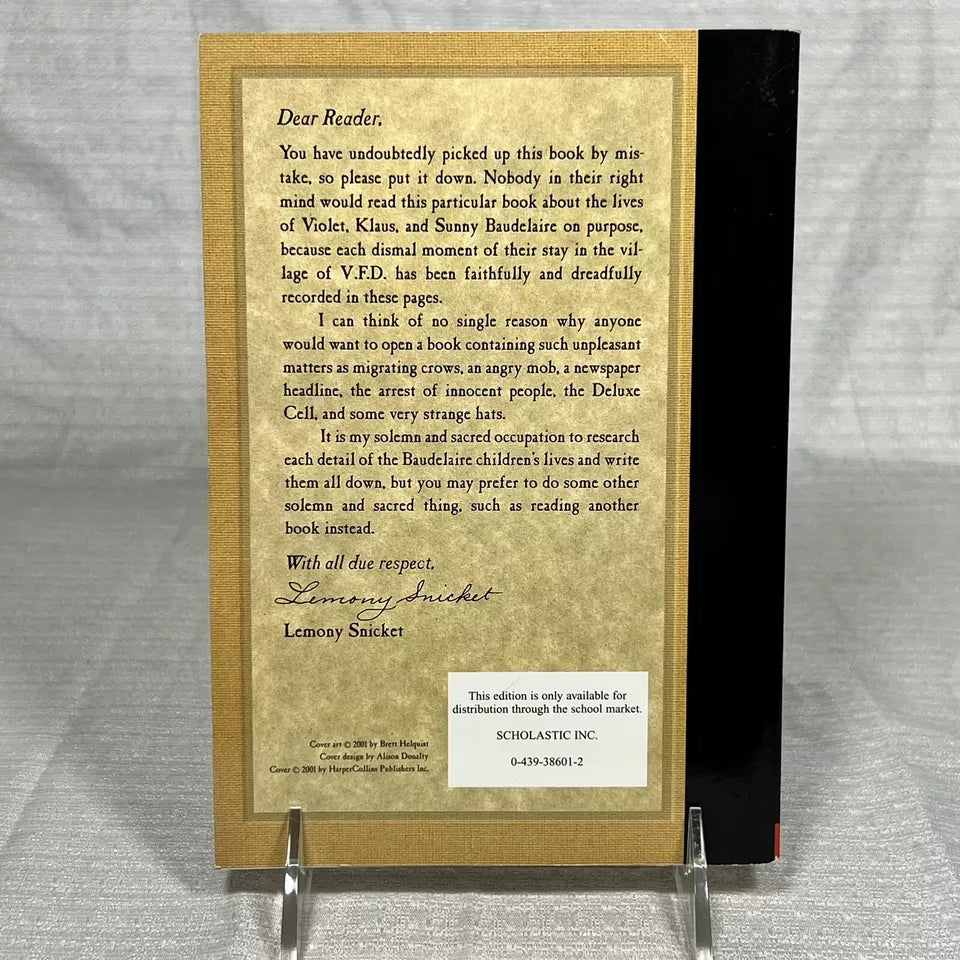 Dear Reader,
You have undoubtedly picked up this book by mis-
take, so please put it down. Nobody in their right
mind would read this particular book about the lives
of Violet, Klaus, and Sunny Baudelaire on purpose,
because each dismal moment of their stay in the vil-
lage of V.F.D. has been faithfully and dreadfully
recorded in these pages.
I can think of no single reason why anyone
would want to open a book containing such unpleasant
matters as migrating crows, an angry mob, a newspaper
headline, the arrest of innocent people, the Deluxe
Cell, and some very strange hats.
It is my solemn and sacred occupation to research
each detail of the Baudelaire children's lives and write
them all down, but you may prefer to do some other
solemn and sacred thing, such as reading another
book instead.
With all due respect,
Lemony Snicket
Lemony Snicket
Cover art © 2001 by Brett Helquist
Cover design by Alison Donalty
Cover © 2001 by HarperCollins Publishers Inc.
This edition is only available for
distribution through the school market.
SCHOLASTIC INC.
0-439-38601-2